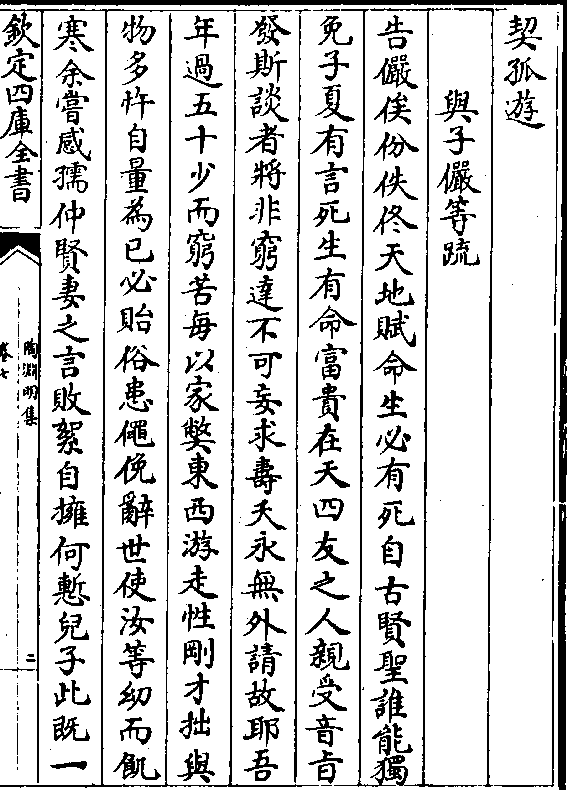 契孤遊
與子儼等疏
告儼俟份佚佟天地賦命生必有死自古賢聖誰能獨
免子夏有言死生有命富貴在天四友之人親受音旨
發斯談者將非窮達不可妄求壽夭永無外請故耶吾
年過五十少而窮苦每以家弊東西游走性剛才拙與
物多忤自量為已必貽俗患僶俛辭世使汝等幼而飢
寒余嘗感孺仲賢妻之言敗絮自擁何慙兒子此既一
欽定四庫全書
陶淵明集
卷七
二